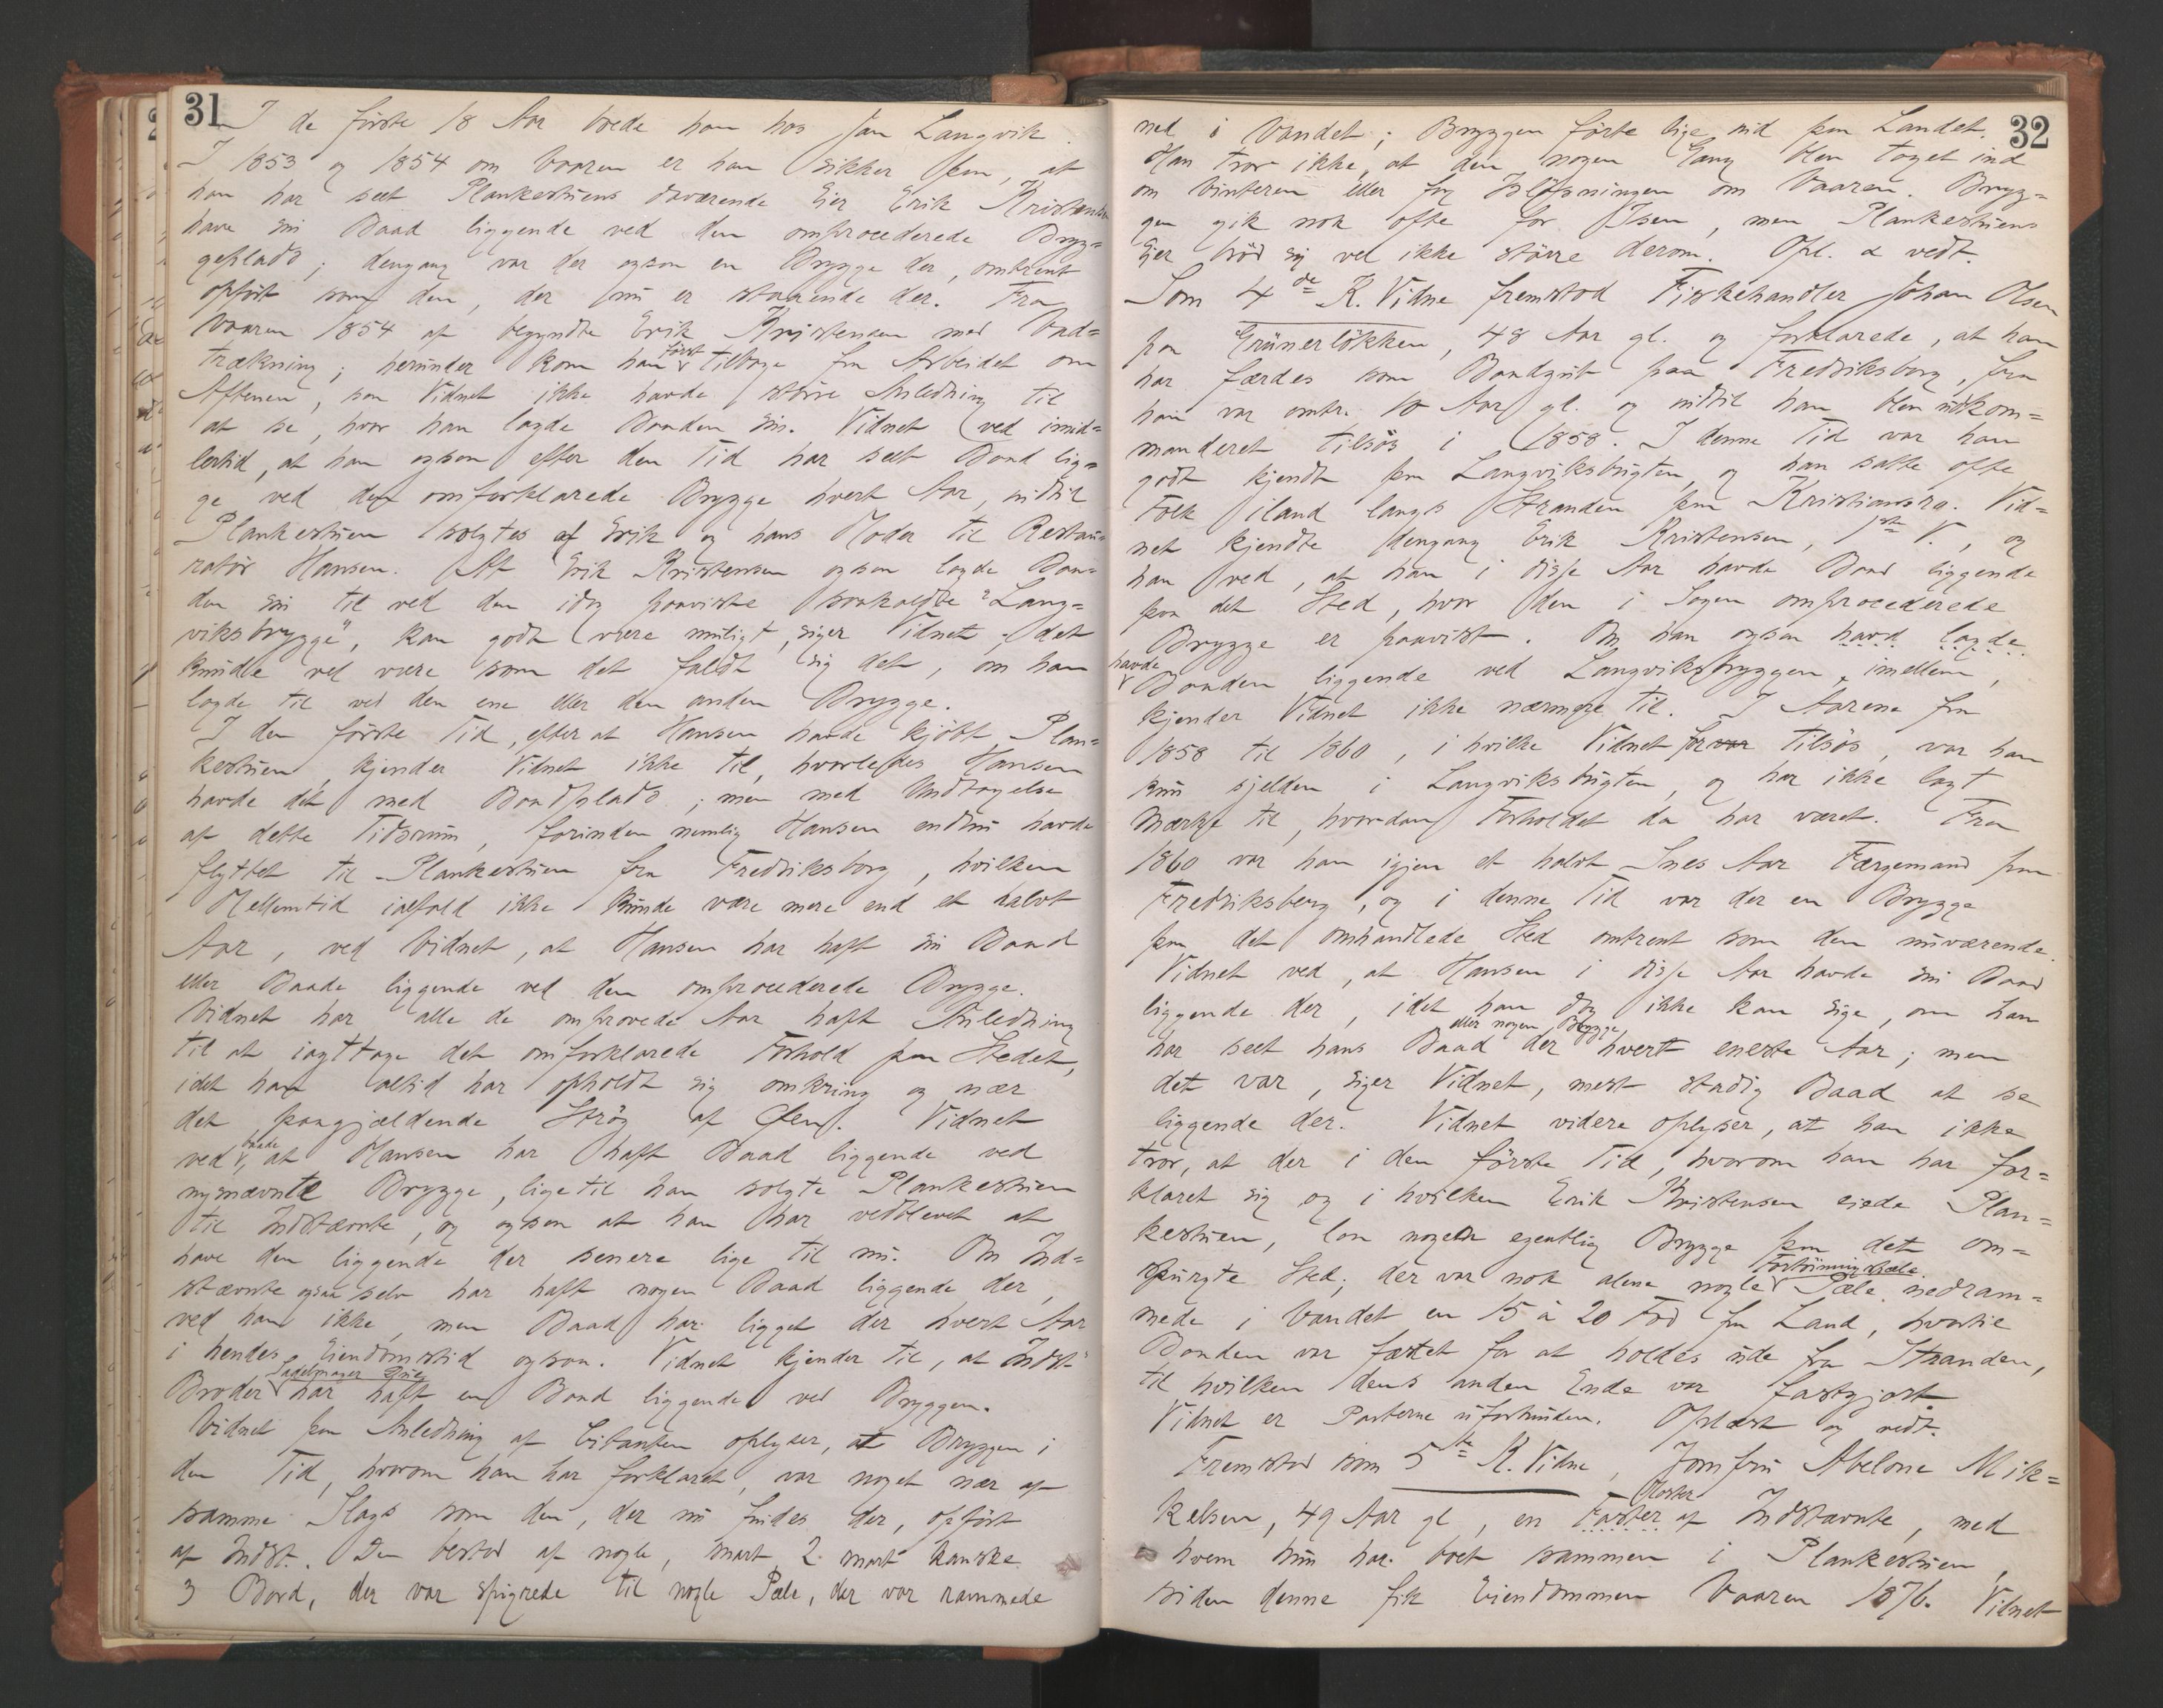 31
I de første 18 Aar boede han hos Jan Langvik.
I 1853 og 1854 om Vaaren er han sikker paa, at
han har seet Plankestuens daværende Eier Erik Kristensen
have sin Baad liggende ved den omprocederede Bryg=
geplads; dengang var der ogsaa en Brygge der, omtrent
opført som den, der nu er staaende der. Fra
Vaaren 1854 af begyndte Erik Kristensen med Vad=
trækning; herunder kom han først tilbage fra Arbeidet om
Aftenen, saa Vidnet ikke havde større Anledning til
at se, hvor han lagde Baaden sin. Vidnet ved imid=
lertid, at han ogsaa efter den Tid har seet Baad lig=
ge ved den omforklarede Brygge hvert Aar, indtil
Plankestuen solgtes af Erik og hans Moder til Restau=
ratør Hansen. At Erik Kristensen ogsaa lagde Baa=
den sin til ved den idag paaviste saakaldte "Lang=
viksbrygge", kan godt være muligt, siger Vidnet; det
kunde vel være som det faldt sig det, om han
lagde til ved den ene eller den anden Brygge.
I den første Tid, efterat Hansen havde kjøbt Plan=
kestuen, kjender Vidnet ikke til, hvorledes Hansen
havde det med Baadplads; men med Undtagelse
af dette Tidsrum, forinden nemlig Hansen endnu havde
flyttet til Plankestuen fra Fredriksborg, hvilken
Mellemtid ialfald ikke kunde være mere end et halvt
Aar, ved Vidnet, at Hansen har haft sin Baad
eller Baade liggende ved den omprocederede Brygge.
Vidnet har alle de omprovede Aar haft Anledning
til at iagttage det omforklarede Forhold paa Stedet,
idet han altid har opholdt sig omkring og nær
det paagjældende Strøg af Øen. Vidnet
ved baade, at Hansen har haft Baad liggende ved
nysnævnte Brygge, ligetil han solgte Plankestuen
til Indstævnte, og ogsaa at han har vedblevet at
have den liggende der senere lige til nu. Om Ind=
stævnte ogsaa selv har haft nogen Baad liggende der,
ved han ikke, men Baad har ligget der hvert Aar
i hendes Eiendomstid ogsaa. Vidnet kjender til, at Indst.
Broder Sadelmager har haft en Baad liggende ved Bryggen.
Vidnet paa Anledning af Citanten oplyser, at Bryggen i
den Tid, hvorom han har forklaret, var noget nær af
samme Slags som den, der nu findes der, opført
af Indst. Den bestod af nogle, snart 2 snart kanske
3 Bord, der var spigrede til nogle Pæle, der var rammede
32
ned i Vandet; Bryggen førte lige ind paa Landet.
Han tror ikke, at den nogen Gang blev taget ind
om Vinteren eller før Isløsningen om Vaaren. Bryg=
gen gik nok ofte for Isen, men Plankestuens
Eier brød sig vel ikke større derom. Opl. & vedt.
Som 4de K. Vidne fremstod Fiskehandler Johan Olsen
paa Grünerløkken, 48 Aar gl. og forklarede, at han
har færdes som Baadgut paa Fredriksborg, fra
han var omtr. 10 Aar gl. og indtil han blev udkom=
manderet tilsøs i 1858. I denne Tid var han
godt kjendt paa Langviksbugten, og han satte ofte
Folk iland langs Stranden paa Kristiansra. Vid=
net kjendte dengang Erik Kristensen, 1ste V., og
han ved, at han i disse Aar havde Baad liggende
paa det Sted, hvor den i Sagen omprocederede
Brygge er paavist. Om han ogsaa havd lagde
havde Baaden liggende ved Langviksbryggen imellem,
kjender Vidnet ikke nærmere til. I Aarene fra
1858 til 1860, i hvilke Vidnet for var tilsøs, var han
kun sjelden i Langviksbugten, og har ikke lagt
Mærke til, hvordan Forholdet da har været. Fra
1860 var han igjen et halvt Snes Aar Færgemand paa
Fredriksborg, og i denne Tid var der en Brygge
paa det omhandlede Sted omtrent som den nuværende.
Vidnet ved, at Hansen i disse Aar havde sin Baad
liggende der, idet han dog ikke kan sige, om han
har seet hans Baad eller nogen Brygge der hvert eneste Aar; men
det var, siger Vidnet, mest stadig Baad at se
liggende der. Vidnet videre oplyser, at han ikke
tror, at der i den første Tid, hvorom han har for=
klaret sig og i hvilken Erik Kristensen eiede Plan=
kestuen, laa nogen egentlig Brygge paa det om=
spurgte Sted; der var nok alene nogle Fortøiningspæle Pæle nedram=
mede i Vandet en 15 à 20 Fod fra Land, hvortil
Baaden var fæstet for at holdes ude fra Stranden,
til hvilken dens anden Ende var fastgjort.
Vidnet er Parterne uforbunden. Oplæst og vedt.
Fremstod som 5te K. Vidne, Jomfru Abelone Mik=
kelsen, 49 Aar gl, en Faster Moster af Indstævnte, med
hvem hun har boet sammen i Plankestuen,
siden denne fik Eiendommen Vaaren 1876. Vidnet